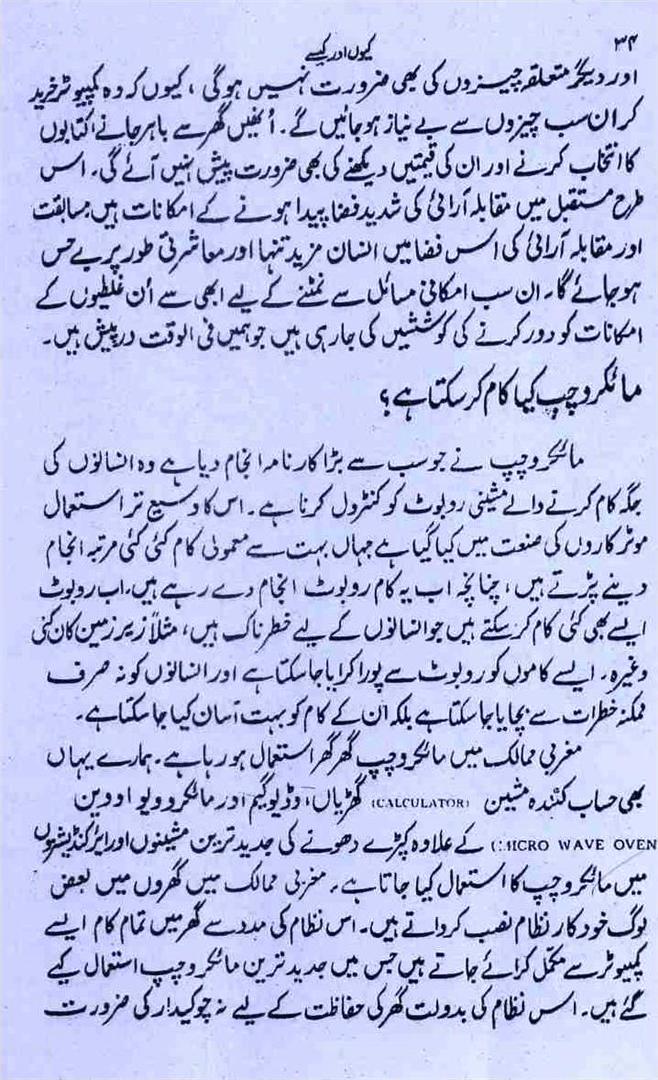 ۳۴
کیوں اور کیسے
اور دیگر متعلقہ چیزوں کی بھی ضرورت نہیں ہوگی، کیوں کہ وہ کمپیوٹر خرید
کر ان سب چیزوں سے بے نیاز ہو جائیں گے۔ اُنھیں گھر سے باہر جانے، کتابوں
کا انتخاب کرنے اور ان کی قیمتیں دیکھنے کی بھی ضرورت پیش نہیں آئے گی۔ اس
طرح مستقبل میں مقابلہ آرائی کی شدید فضا پیدا ہونے کے امکانات ہیں۔ مسابقت
اور مقابلہ آرائی کی اس فضا میں انسان مزید تنہا اور معاشرتی طور پر بے حس
ہو جائے گا۔ ان سب امکانی مسائل سے نمٹنے کے لیے ابھی سے اُن غلطیوں کے
امکانات کو دور کرنے کی کوششیں کی جا رہی ہیں جو ہمیں فی الوقت درپیش ہیں۔
مائکرو چپ کیا کام کر سکتا ہے؟
مائکرو چپ نے جو سب سے بڑا کارنامہ انجام دیا ہے وہ انسانوں کی
جگہ کام کرنے والے مشینی روبوٹ کو کنٹرول کرنا ہے۔ اس کا وسیع تر استعمال
موٹر کاروں کی صنعت میں کیا گیا ہے جہاں بہت سے معمولی کام کئی کئی مرتبہ انجام
دینے پڑتے ہیں، چنانچہ اب یہ کام روبوٹ انجام دے رہے ہیں۔ اب روبوٹ
ایسے بھی کئی کام کر سکتے ہیں جو انسانوں کے لیے خطرناک ہیں، مثلاً زیر زمین کان کنی
وغیرہ۔ ایسے کاموں کو روبوٹ سے پورا کرایا جا سکتا ہے اور انسانوں کو نہ صرف
ممکنہ خطرات سے بچایا جا سکتا ہے بلکہ اُن کے کام کو بہت آسان کیا جا سکتا ہے۔
مغربی ممالک میں مائکرو چپ گھر گھر استعمال ہو رہا ہے۔ ہمارے یہاں
بھی حساب کنندہ مشین (CALCULATOR) گھڑیاں، وڈیو گیم اور مائکرو ویو اووین
(MICRO WAVE OVEN) کے علاوہ کپڑے دھونے کی جدید ترین مشینوں اور ایئر کنڈیشنروں
میں مائکرو چپ کا استعمال کیا جاتا ہے۔ مغربی ممالک میں گھروں میں بعض
لوگ خود کار نظام نصب کرواتے ہیں۔ اس نظام کی مدد سے گھر میں تمام کام ایسے
کمپیوٹر سے مکمل کرائے جاتے ہیں جس میں جدید ترین مائکرو چپ استعمال کیے
گئے ہیں۔ اس نظام کی بدولت گھر کی حفاظت کے لیے نہ چوکیدار کی ضرورت